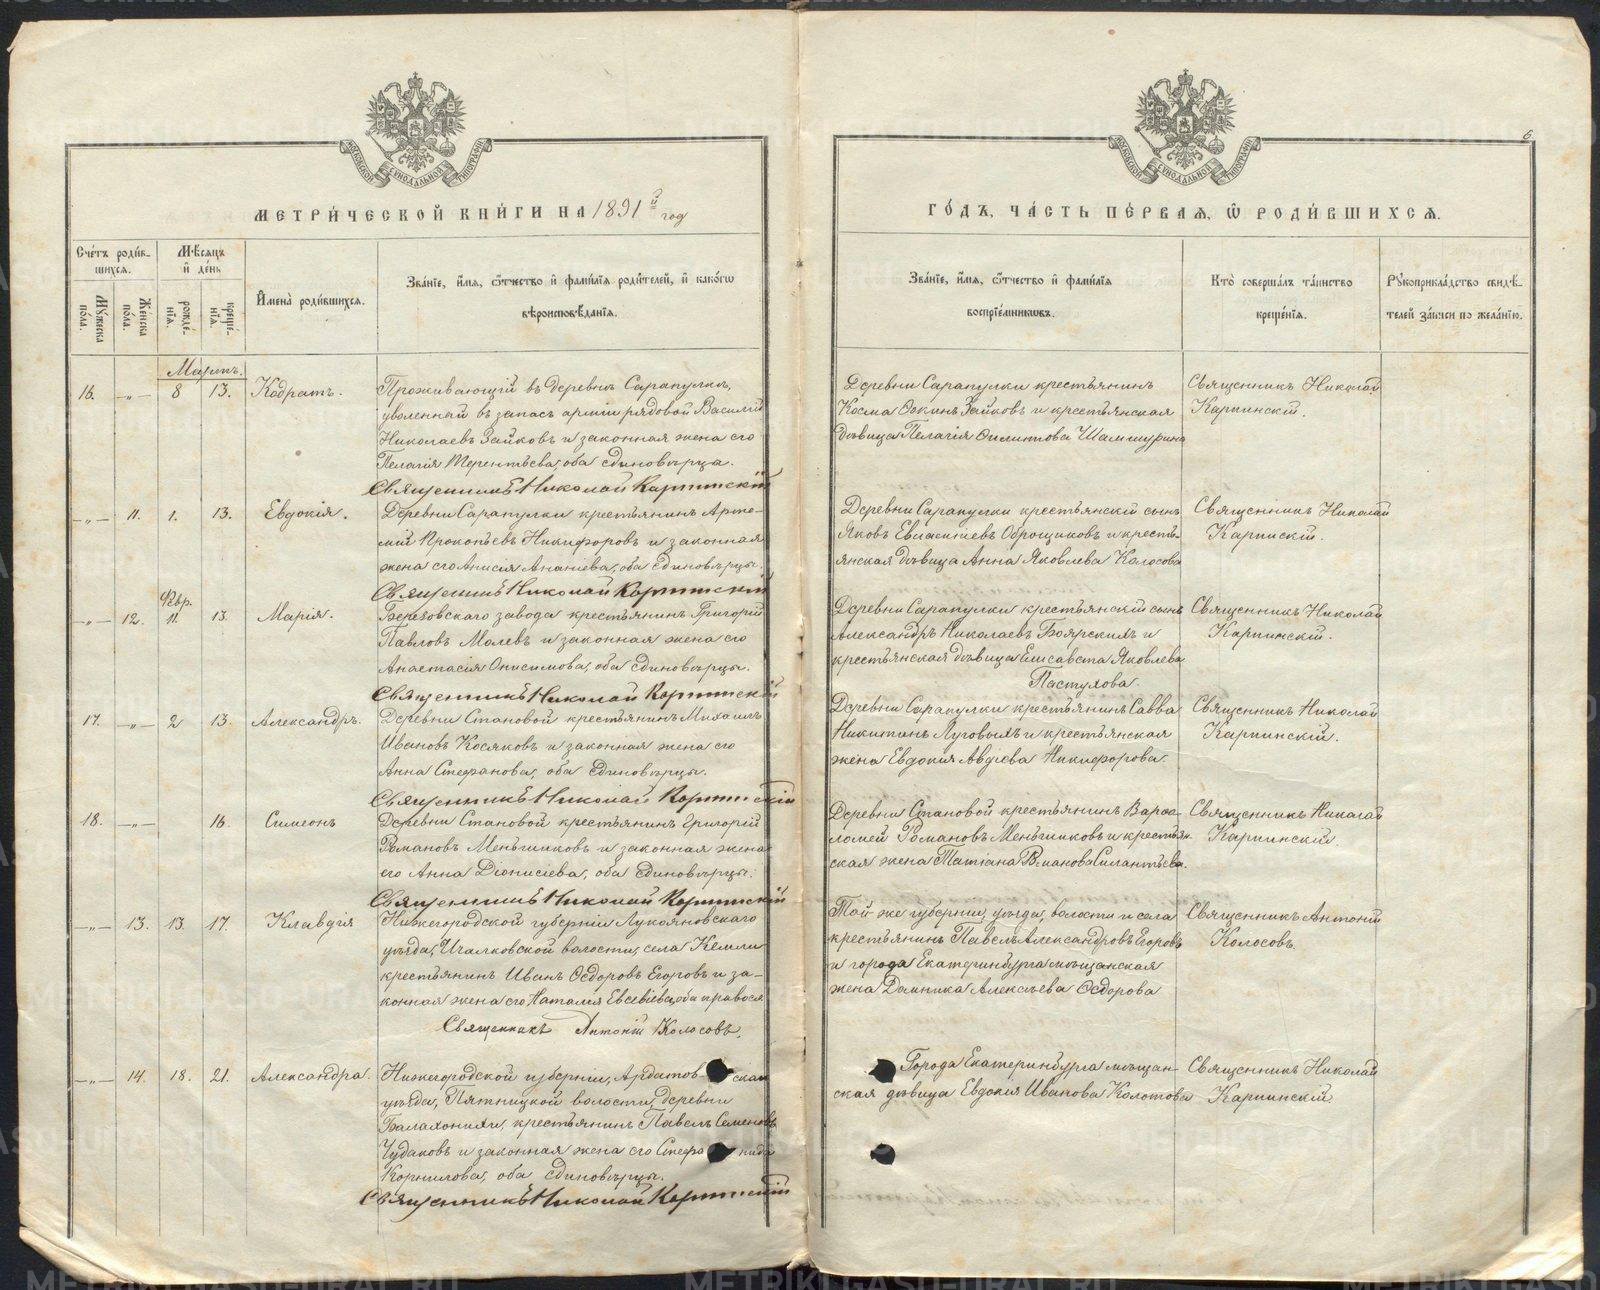 МЕТРИЧЕСКОЙ КНИГИ НА 1891й год
Счетъ родив-
шихся.
Мѣсяцъ
и день
Имена родившихся.
Званіе, имя, отчество и фамилія родителей, и какого
вѣроисповѣданія.
Мужеска
пола.
Женска
пола.
рожде-
нія.
креще-
нія.
Мартъ.
16. -„- 8 13. Кодратъ.
Проживающій въ деревнѣ Сарапулкѣ,
уволенный въ запасъ арміи рядовой Василій
Николаевъ Зайковъ и законная жена его
Пелагія Терентьева, оба единовѣрца.
Священникъ Николай Карпинскій
-„- 11. 1. 13. Евдокія.
Деревни Сарапулки крестьянинъ Арте-
мій Прокопьевъ Никифоровъ и законная
жена его Анисія Ананіева, оба единовѣрцы.
Священникъ Николай Карпинскій
Фвр.
-„- 12. 11. 13. Марія.
Березовскаго завода крестьянинъ Григорій
Павловъ Малевъ и законная жена его
Анастасія Онисимова, оба единовѣрцы.
Священникъ Николай Карпинскій
17. -„- 2 13. Александръ.
Деревни Становой крестьянинъ Михаилъ
Ивановъ Косяковъ и законная жена его
Анна Стефанова, оба единовѣрцы.
Священникъ Николай Карпинскій
18. -„- 16. Симеонъ
Деревни Становой крестьянинъ Григорій
Романовъ Меньшиковъ и законная жена
его Анна Діонисіева, оба единовѣрцы.
Священникъ Николай Карпинскій
-„- 13. 13. 17. Клавдія
Нижегородской губерніи Лукояновскаго
уѣзда, Ичалковской волости, села Кемли
крестьянинъ Иванъ Ѳедоровъ Егоровъ и за-
конная жена его Наталія Евсевіева, оба правосл
Священникъ Антоній Колосовъ.
-„- 14. 18. 21. Александра.
Нижегородской губерніи, Ардатов скаго
уѣзда, Пятницкой волости, деревни
крестьянинъ Павелъ Семеновъ
Чудаковъ и законная жена его Стефа нида
Корнилова, оба единовѣрцы.
Священникъ Николай Карпинскій
6.
ГОДЪ, ЧАСТЬ ПЕРВАЯ, Ѡ РОДИВШИХСЯ.
Званіе, имя, отчество и фамилія
воспріемниковъ.
Кто совершалъ таинство
крещенія.
Рукоприкладство свидѣ-
телей записи по желанію.
Деревни Сарапулки крестьянинъ
Косма Ѳокинъ Зайковъ и крестьянская
дѣвица Пелагія Филиппова Шамшурина
Священникъ Николай
Карпинскій.
Деревни Сарапулки крестьянскій сынъ
Яковъ Евгеніевъ Оброщиковъ и кресть-
янская дѣвица Анна Яковлева Колосова
Священникъ Николай
Карпинскій.
Деревни Сарапулки крестьянскій сынъ
Александръ Николаевъ Боярскихъ и
крестьянская дѣвица Елисавета Яковлева
Пастухова.
Священникъ Николай
Карпинскій.
Деревни Сарапулки крестьянинъ Савва
Никитинъ Луговыхъ и крестьянская
жена Евдокія Авдіева Никифорова.
Священникъ Николай
Карпинскій.
Деревни Становой крестьянинъ Варѳо-
ломей Романовъ Меньшиковъ и крестьян-
ская жена Татіана Романова Силантьева.
Священникъ Николай
Карпинскій.
Той-же губерніи, уѣзда, волости и села
крестьянинъ Павелъ Александровъ Егоровъ
и города Екатеринбурга мѣщанская
жена Домника Алексѣева Ѳедорова
Священникъ Антоній
Колосовъ.
Города Екатеринбурга мѣщан-
ская дѣвица Евдокія Иванова Колотова
Священникъ Николай
Карпинскій.
METRIKI.GASO-URAL.RU